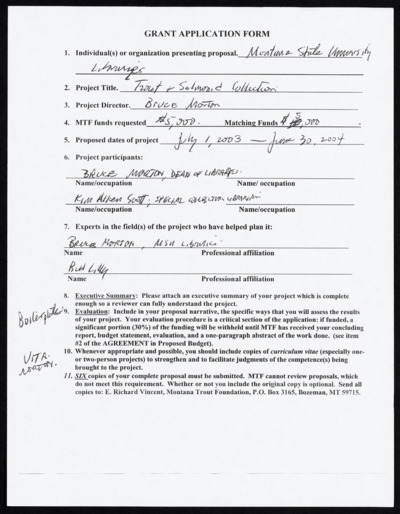 GRANT APPLICATION FORM
1. Individual(s) or organization presenting proposal. Montana State University
Libraries
2. Project Title. Trout & Salmonid Collection
3. Project Director. Bruce Morton
4. MTF funds requested $5,000. Matching Funds $ 5,000 .
5. Proposed dates of project July 1, 2003 — June 30, 2004
6. Project participants:
BRUCE MORTON, DEAN OF LIBRARIES.
Name/occupation Name/ occupation
Kim Allen Scott, SPECIAL COLLECTION LIBRARIAN
Name/occupation Name/occupation
7. Experts in the field(s) of the project who have helped plan it:
Bruce MORTON, MSU Libraries
Name Professional affiliation
Bud Lilly
Name Professional affiliation
8. Executive Summary: Please attach an executive summary of your project which is complete
enough so a reviewer can fully understand the project.
Boilerplate
9. Evaluation: Include in your proposal narrative, the specific ways that you will assess the results
of your project. Your evaluation procedure is a critical section of the application: if funded, a
significant portion (30%) of the funding will be withheld until MTF has received your concluding
report, budget statement, evaluation, and a one-paragraph abstract of the work done. (see item
#2 of the AGREEMENT in Proposed Budget).
VITA
MORTON.
10. Whenever appropriate and possible, you should include copies of curriculum vitae (especially one-
or two-person projects) to strengthen and to facilitate judgments of the competence(s) being
brought to the project.
11. SIX copies of your complete proposal must be submitted. MTF cannot review proposals, which
do not meet this requirement. Whether or not you include the original copy is optional. Send all
copies to: E. Richard Vincent, Montana Trout Foundation, P.O. Box 3165, Bozeman, MT 59715.